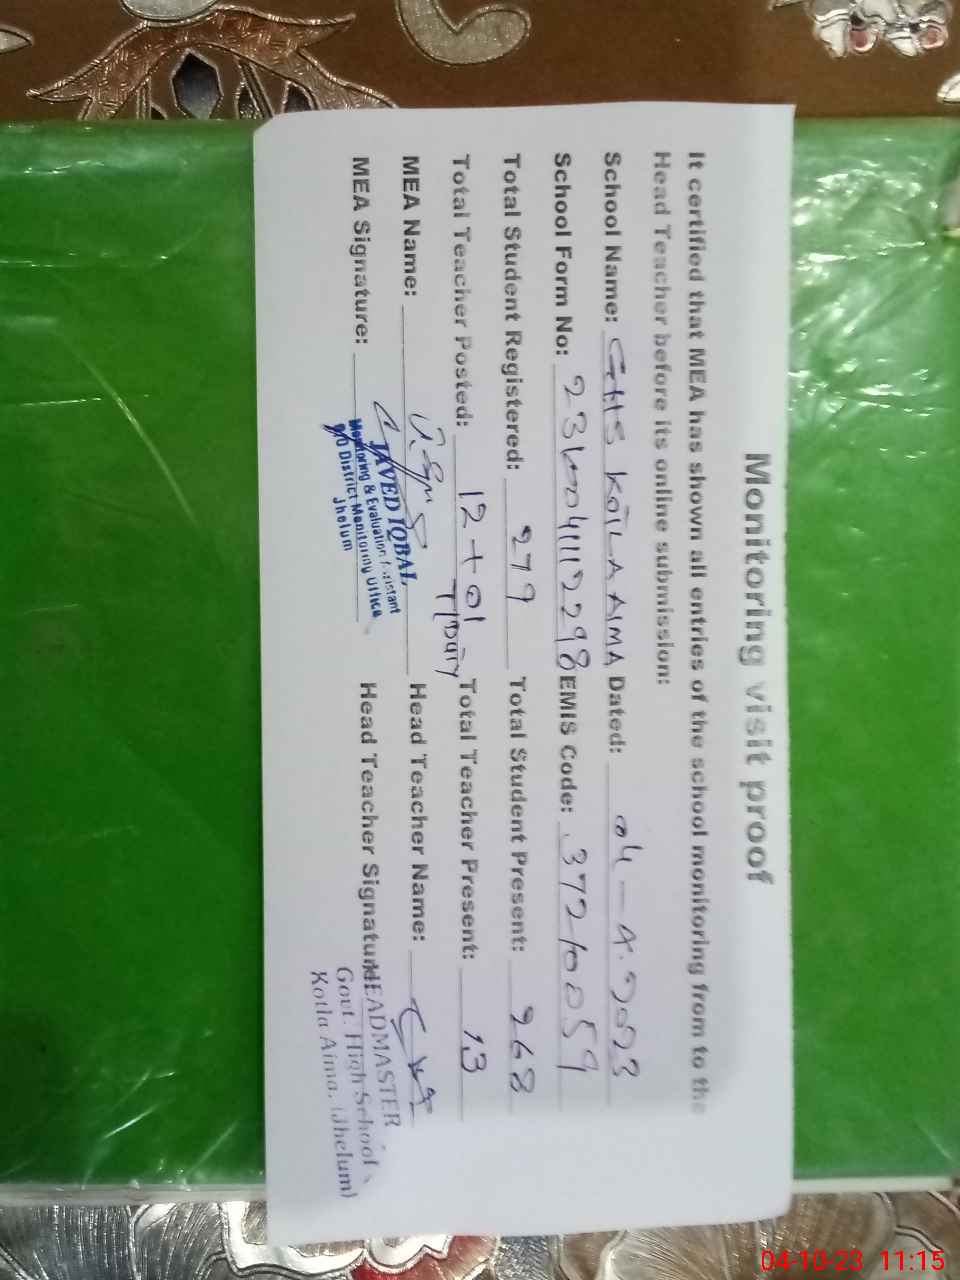 Monitoring visit proof
It certified that MEA has shown all entries of the school monitoring from to the
Head Teacher before its online submission:
School Name: GHS KOTLA AIMA Dated: 04-
School Form No: EMIS Code: 37210059
Total Student Registered: 279 Total Student Present: 268
Total Teacher Posted: 12+01 Total Teacher Present: 13
MEA Name: Head Teacher Name:
MEA Signature: Head Teacher Signature
JAVED IQBAL
Monitoring & Evaluation Assistant
O/O District Monitoring Office
Jhelum
HEADMASTER
Govt. High School
Kotla Aima, (Jhelum)
04-10-23 11:15